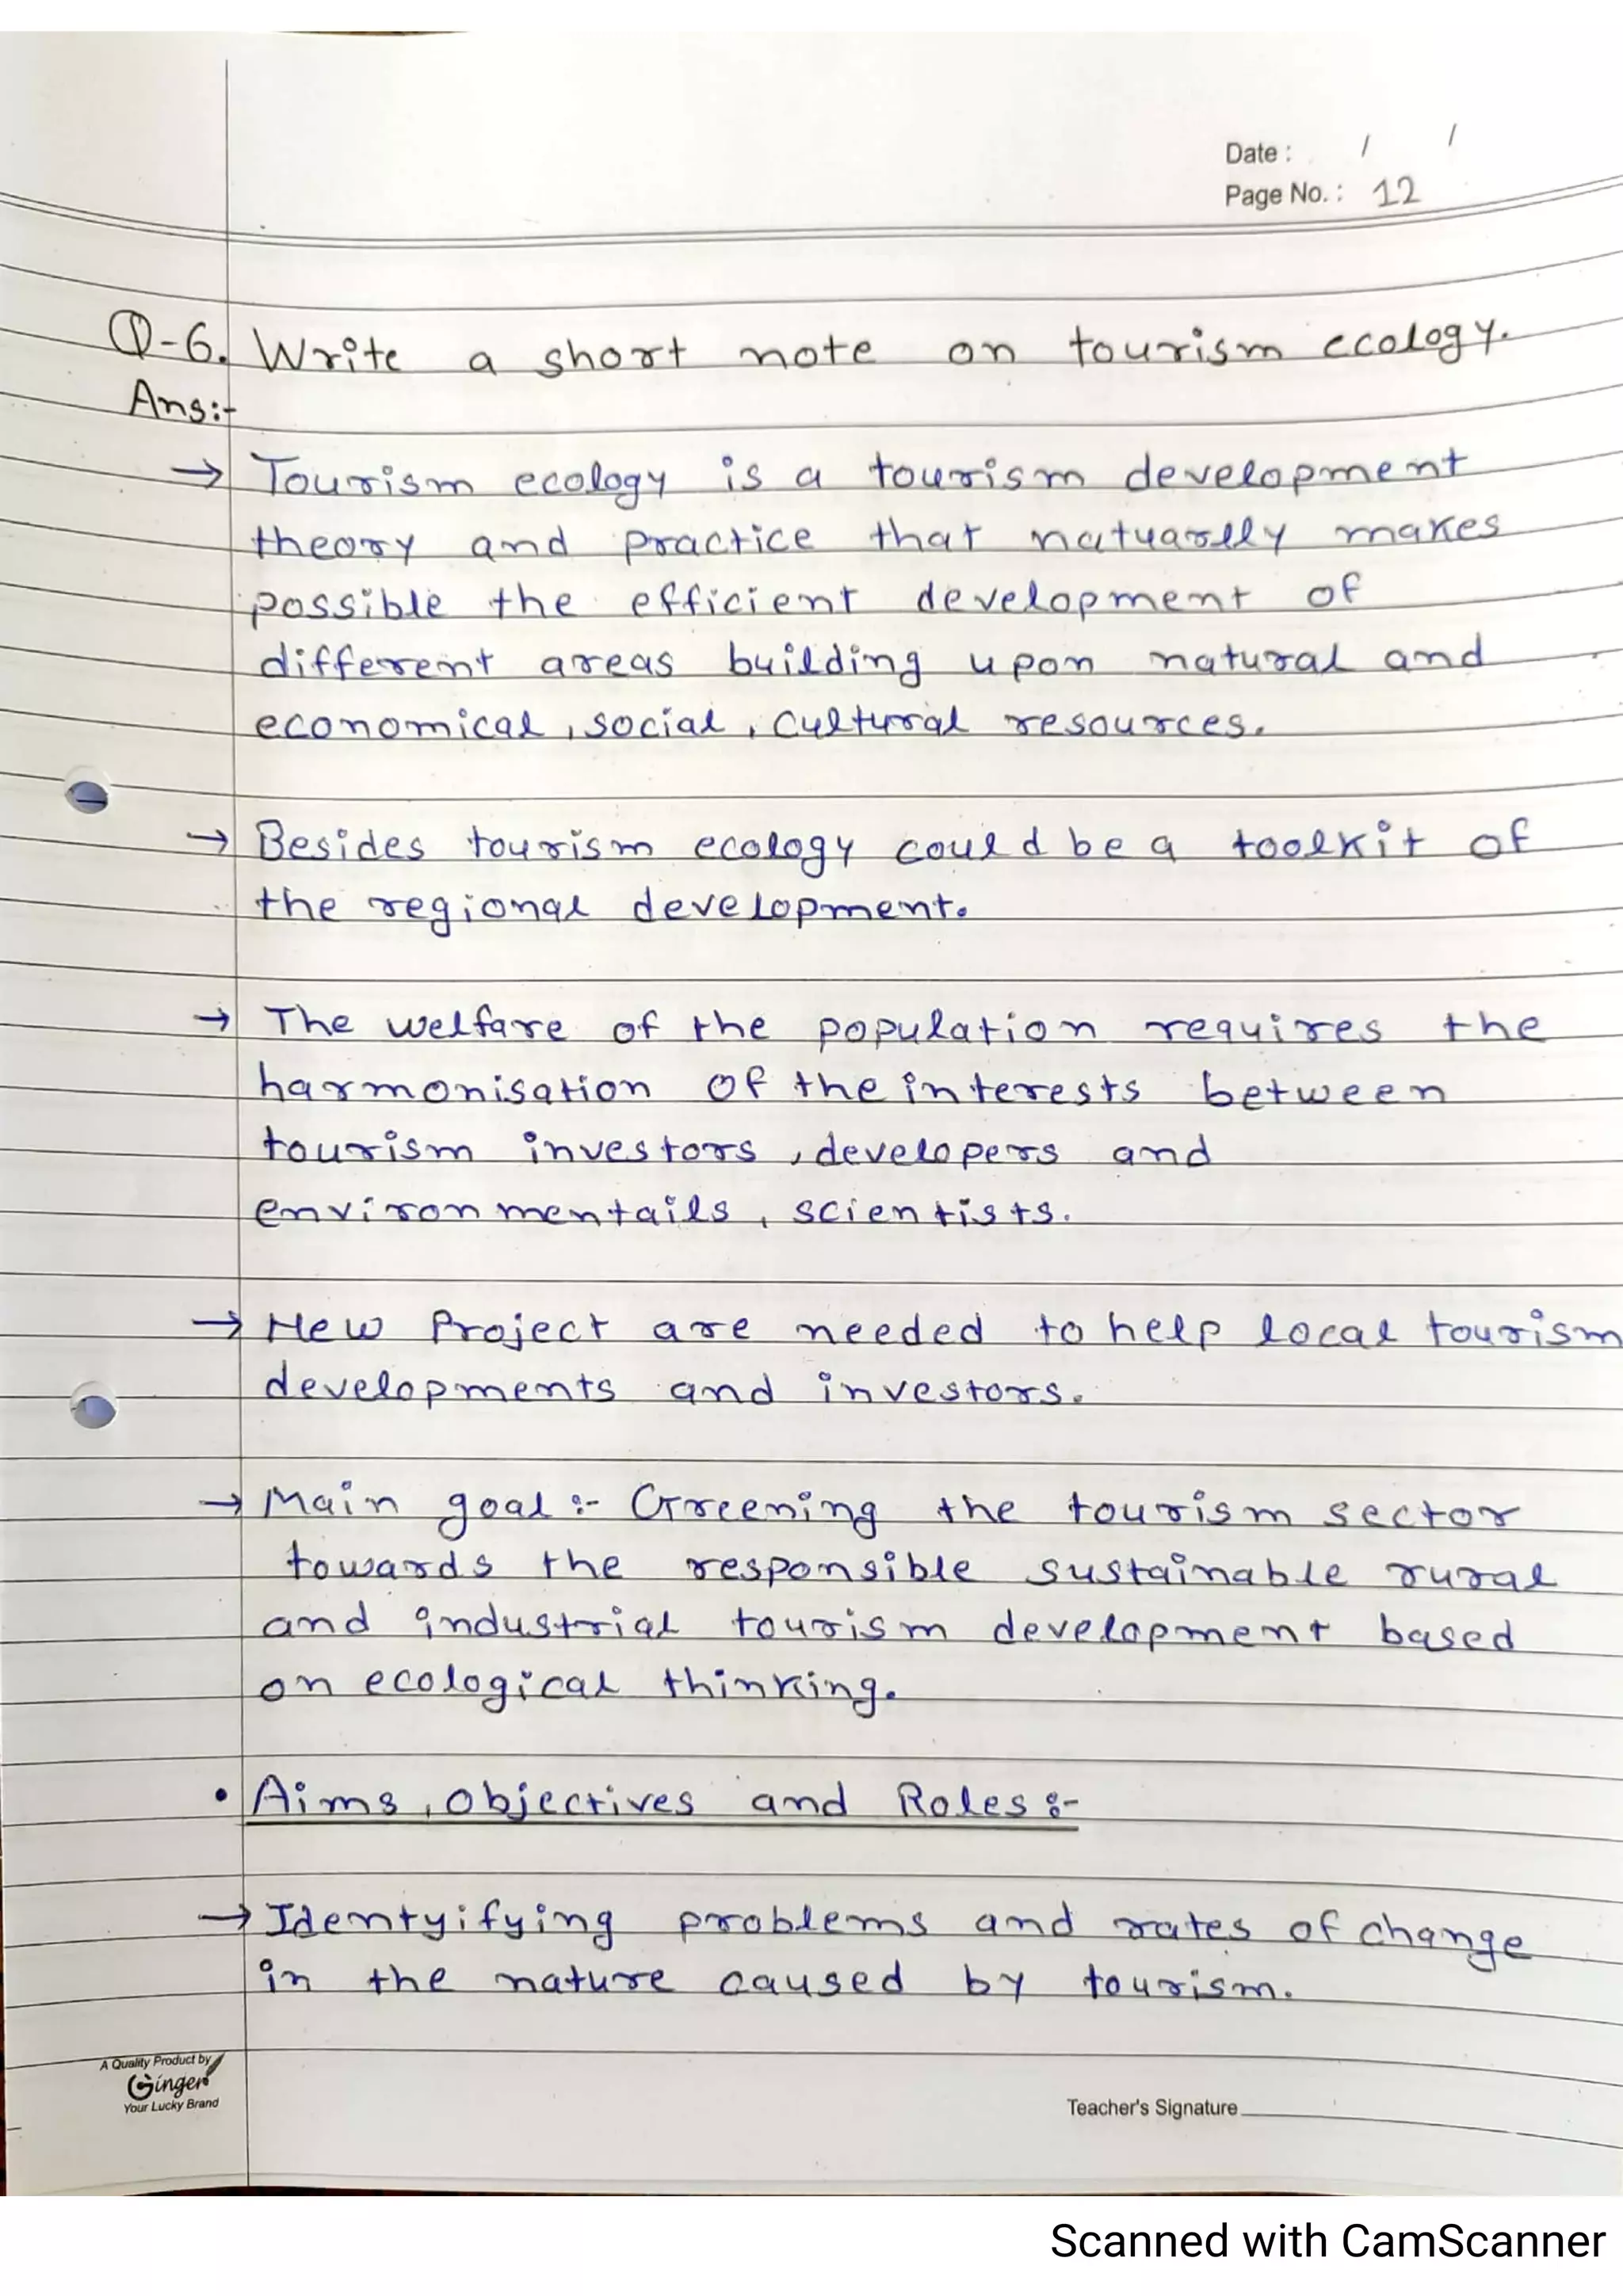 Date : / /
Page No. : 12
Q-6. Write a short note on tourism ecology.
Ans:-
→ Tourism ecology is a tourism development
theory and practice that natuarlly makes
possible the efficient development of
different areas building upon natural and
economical, social, cultural resources.
→ Besides tourism ecology could be a toolkit of
the regional development.
→ The welfare of the population requires the
harmonisation of the interests between
tourism investors, developers and
environmentails, scientists.
→ New Project are needed to help local tourism
developments and investors.
→ Main goal :- Greening the tourism sector
towards the responsible sustainable rural
and industrial tourism development based
on ecological thinking.
• Aims, objectives and Roles :-
→ Identyifying problems and rates of change
in the nature caused by tourism.
A Quality Product by
Ginger
Your Lucky Brand
Teacher's Signature
Scanned with CamScanner